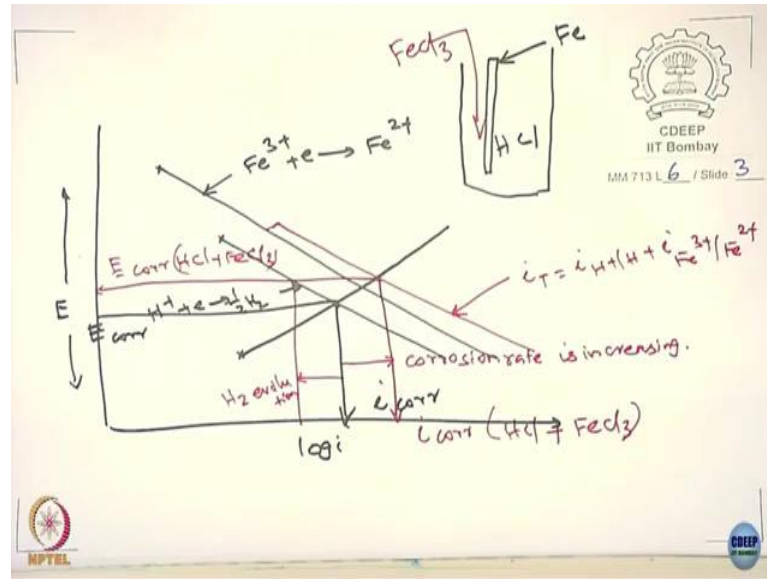 FeCl3
Fe
HCl
CDEEP
IIT Bombay
MM 713 L 6 / Slide 3
Fe3+ + e → Fe2+
E corr (HCl + FeCl3)
iT = iH+/H + iFe3+/Fe2+
H+ + e → 1/2 H2
E
E corr
corrosion rate is increasing.
H2 evolution
i corr
log i
i corr (HCl + FeCl3)
NPTEL
CDEEP
IIT BOMBAY